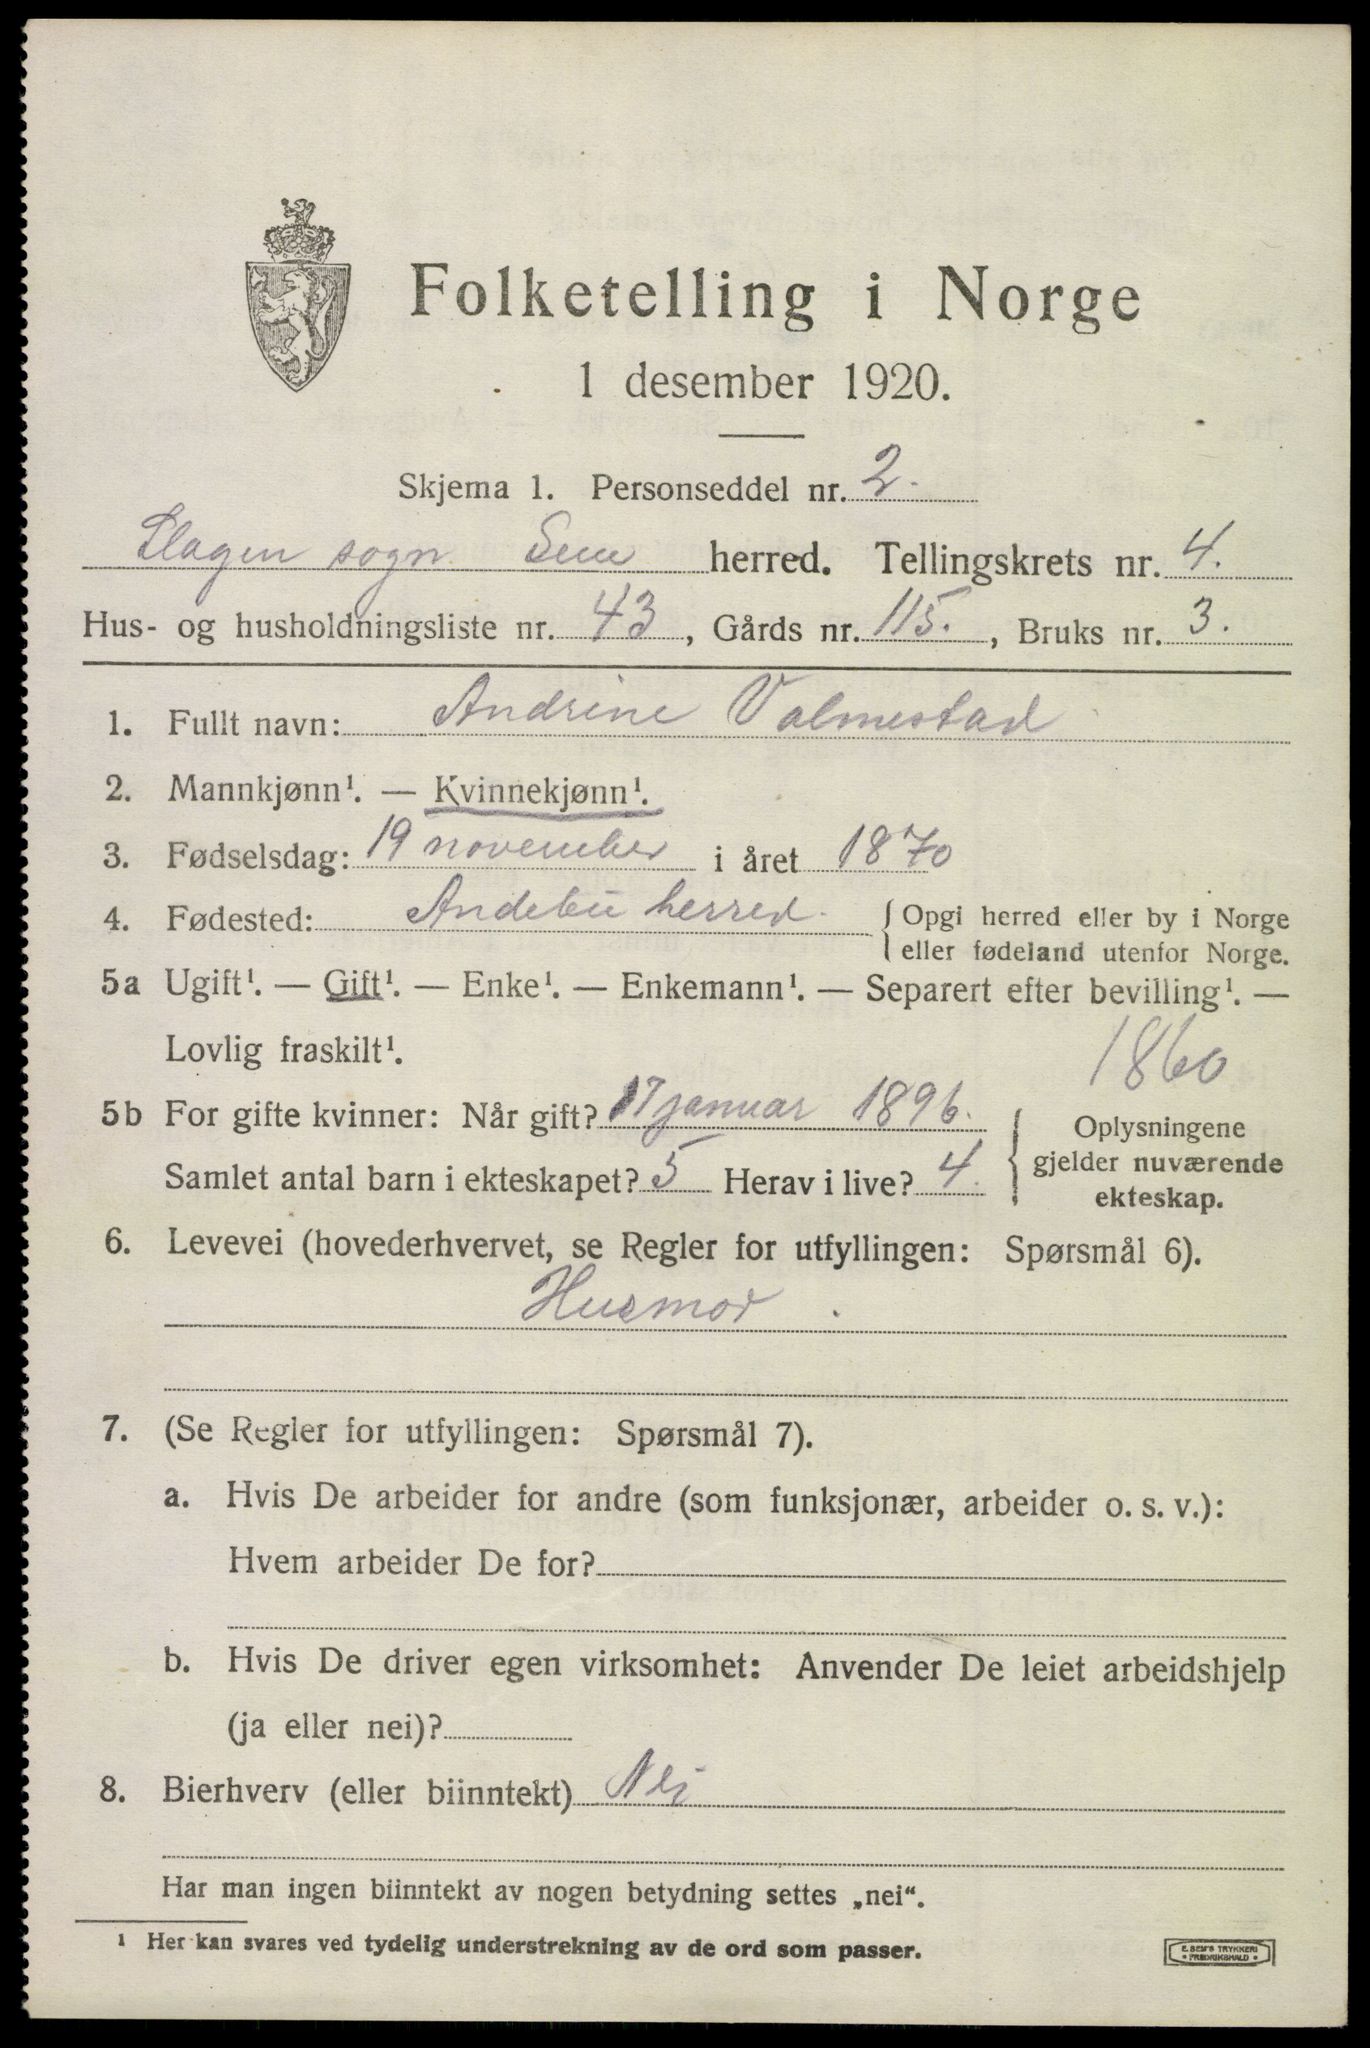 Folketelling i Norge
1 desember 1920.
Skjema 1. Personseddel nr. 2.
Slagen sogn. Sem herred. Tellingskrets nr. 4.
Hus- og husholdningsliste nr. 43, Gårds nr. 115., Bruks nr. 3.
1. Fullt navn: Andrine Valmestad
2. Mannkjønn¹. — Kvinnekjønn¹.
3. Fødselsdag: 19 november i året 1870
4. Fødested: Andebu herred. { Opgi herred eller by i Norge
eller fødeland utenfor Norge.
5a Ugift¹. — Gift¹. — Enke¹. — Enkemann¹. — Separert efter bevilling¹. —
Lovlig fraskilt¹.
1860
5b For gifte kvinner: Når gift? 17 januar 1896.
Samlet antal barn i ekteskapet? 5 Herav i live? 4.
{ Oplysningene
gjelder nuværende
ekteskap.
6. Levevei (hovederhvervet, se Regler for utfyllingen: Spørsmål 6).
Husmor.
7. (Se Regler for utfyllingen: Spørsmål 7).
a. Hvis De arbeider for andre (som funksjonær, arbeider o. s. v.):
Hvem arbeider De for?
b. Hvis De driver egen virksomhet: Anvender De leiet arbeidshjelp
(ja eller nei)?
8. Bierhverv (eller biinntekt) Nei
Har man ingen biinntekt av nogen betydning settes „nei“.
¹ Her kan svares ved tydelig understrekning av de ord som passer.
E. SEM'S TRYKKERI
• FREDRIKSHALD •